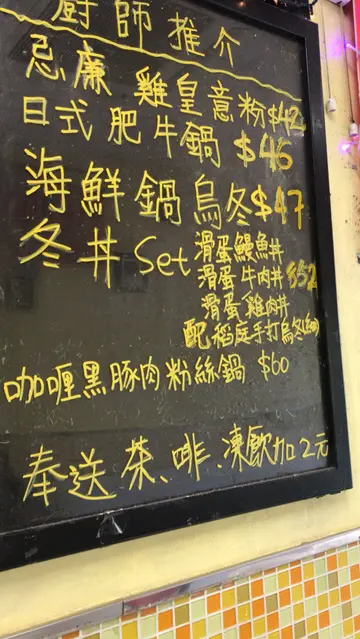 厨師推介
忌廉雞皇意粉$42
日式肥牛鍋 $46
海鮮鍋烏冬$47
冬丼Set 滑蛋鰻魚丼
滑蛋牛肉丼 $52
滑蛋雞肉丼
配稻庭手打烏冬
咖喱黑豚肉粉絲鍋 $60
奉送茶、啡、凍飲加2元